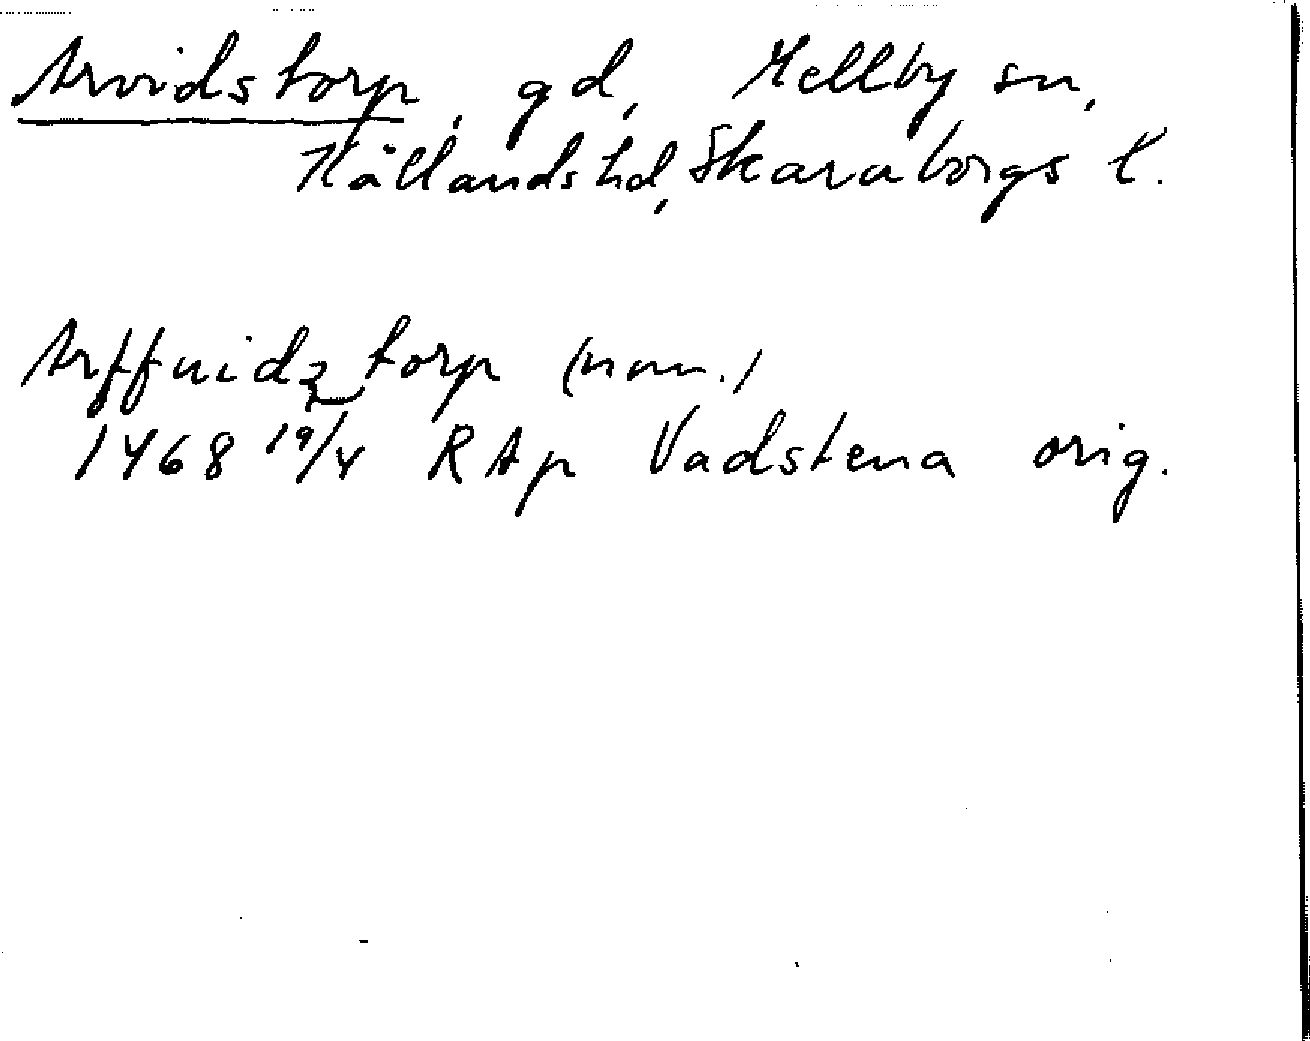 Arvidstorp, gd, Mellby sn,
Kållands hd, Skaraborgs l.
Arffuidz torp (nom.)
1468 19/4 RAp Vadstena orig.